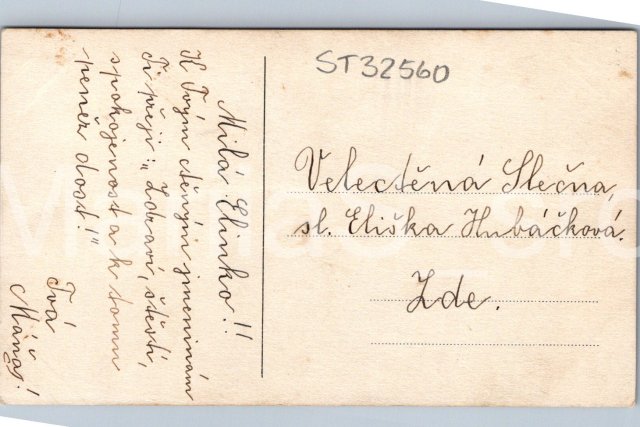 Milá Elinko!!
K Tvým ctěným jmeninám
Ti přeji: „Zdraví, štěstí,
spokojenost a k tomu
peněz dost!"
Tvá
Máňa!
ST32560
Velectěná Slečna,
sl. Eliška Hubáčková.
Zde.